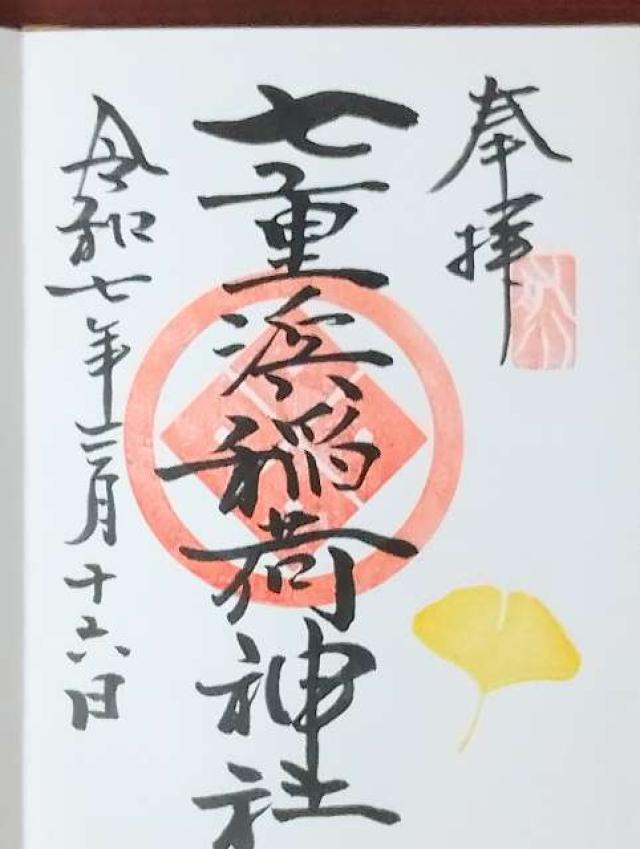 奉拝
七重浜稲荷神社
令和七年十二月十六日